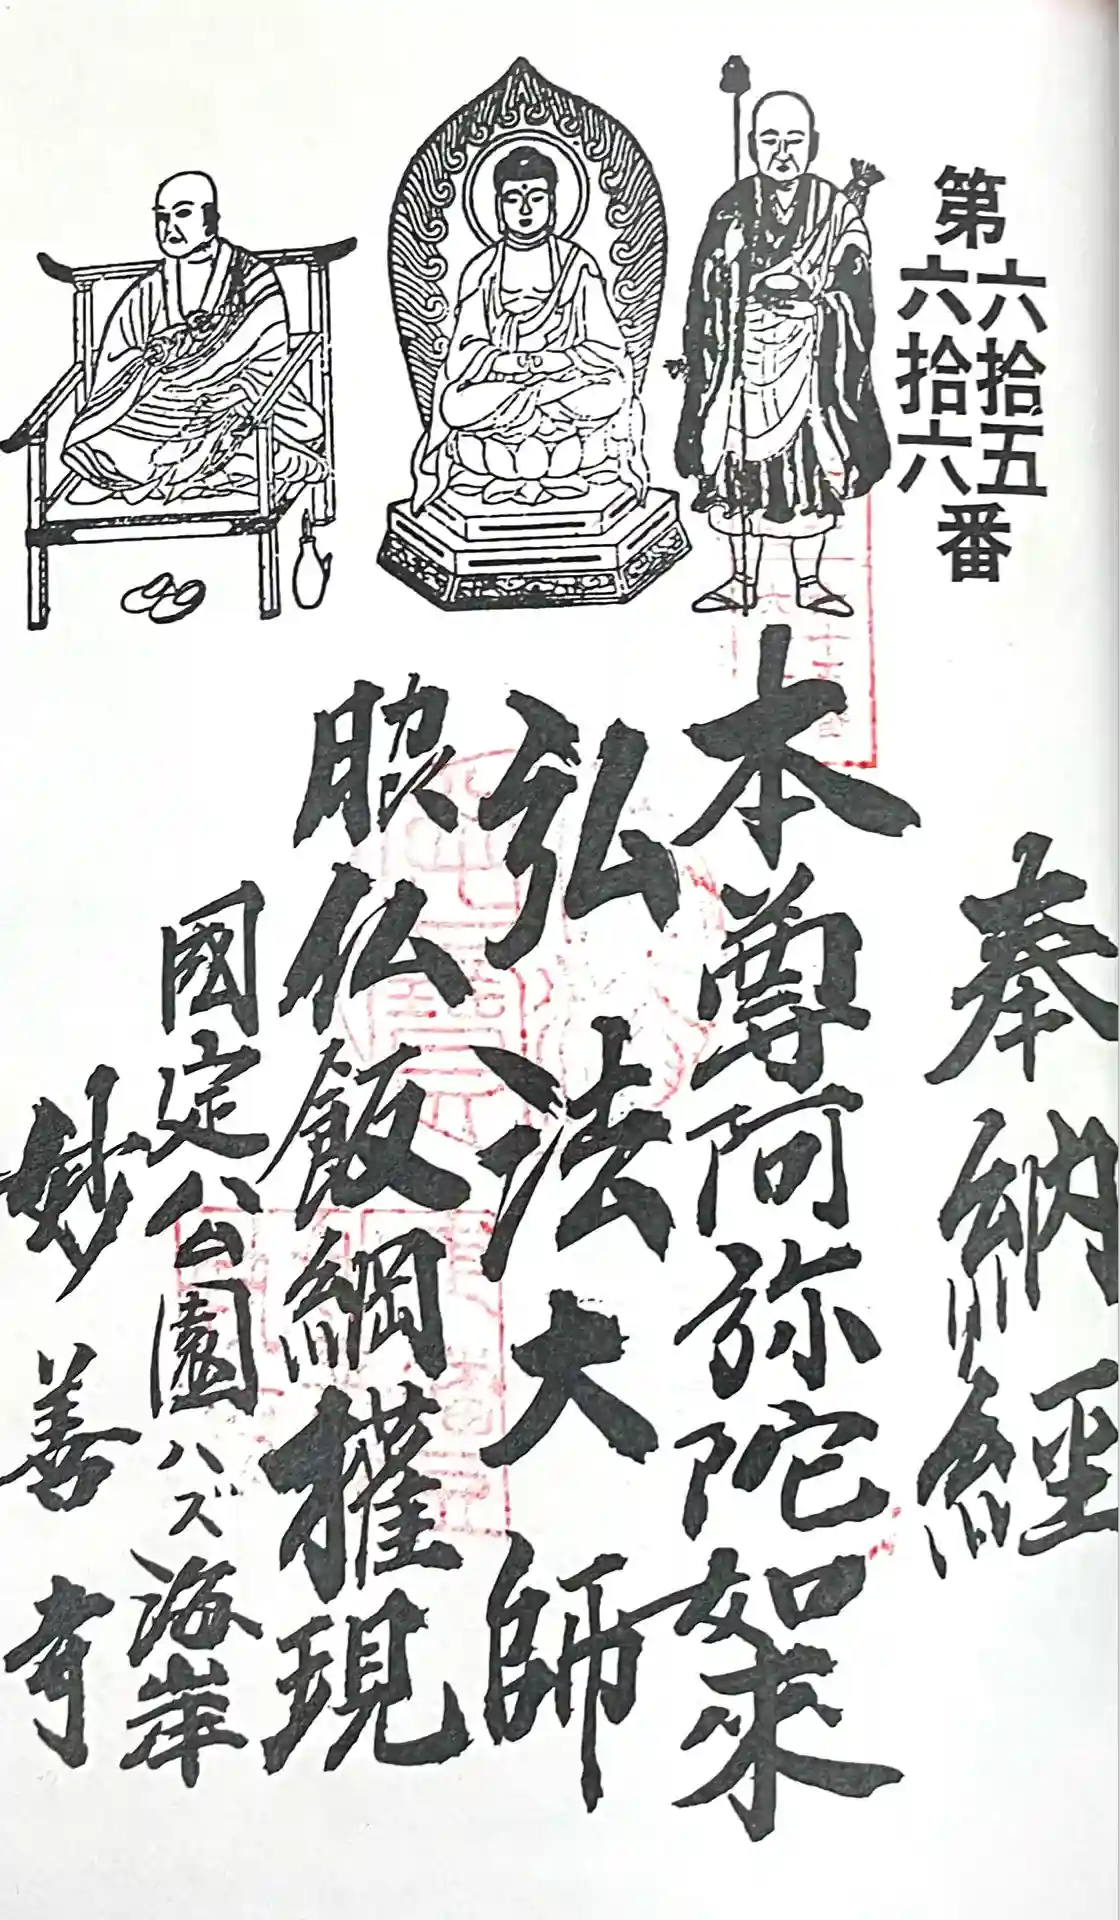 第六拾五
六拾六番
奉納経
本尊阿弥陀如来
弘法大師
脇仏飯綱権現
國定公園ハズ海岸
妙善寺